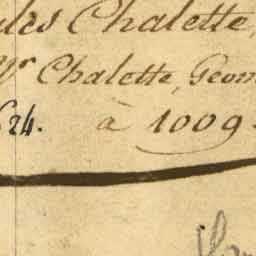 les Chalette,
Mr Chalette, Geom
624. à 1009.